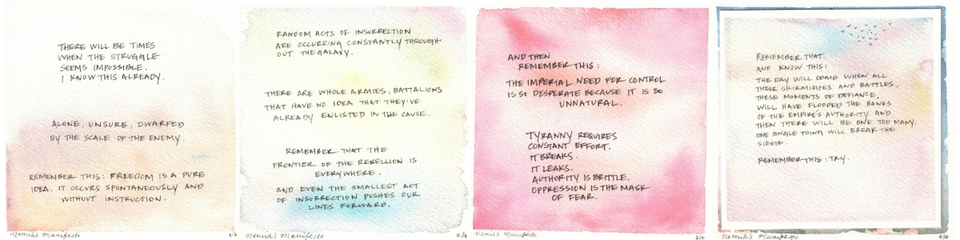 THERE WILL BE TIMES
WHEN THE STRUGGLE
SEEMS IMPOSSIBLE.
I KNOW THIS ALREADY.
ALONE, UNSURE, DWARFED
BY THE SCALE OF THE ENEMY.
REMEMBER THIS: FREEDOM IS A PURE
IDEA. IT OCCURS SPONTANEOUSLY AND
WITHOUT INSTRUCTION.
Nemik's Manifesto 1/4
RANDOM ACTS OF INSURRECTION
ARE OCCURRING CONSTANTLY THROUGH-
OUT THE GALAXY.
THERE ARE WHOLE ARMIES, BATTALIONS
THAT HAVE NO IDEA THAT THEY'VE
ALREADY ENLISTED IN THE CAUSE.
REMEMBER THAT THE
FRONTIER OF THE REBELLION IS
EVERYWHERE.
AND EVEN THE SMALLEST ACT
OF INSURRECTION PUSHES OUR
LINES FORWARD.
Nemik's Manifesto 2/4
AND THEN
REMEMBER THIS:
THE IMPERIAL NEED FOR CONTROL
IS SO DESPERATE BECAUSE IT IS SO
UNNATURAL.
TYRANNY REQUIRES
CONSTANT EFFORT.
IT BREAKS.
IT LEAKS.
AUTHORITY IS BRITTLE.
OPPRESSION IS THE MASK
OF FEAR.
Nemik's Manifesto 3/4
REMEMBER THAT.
AND KNOW THIS:
THE DAY WILL COME WHEN ALL
THESE SKIRMISHES AND BATTLES,
THESE MOMENTS OF DEFIANCE,
WILL HAVE FLOODED THE BANKS
OF THE EMPIRE'S AUTHORITY AND
THEN THERE WILL BE ONE TOO MANY.
ONE SINGLE THING WILL BREAK THE
SIEGE.
REMEMBER THIS: TRY.
Nemik's Manifesto 4/4